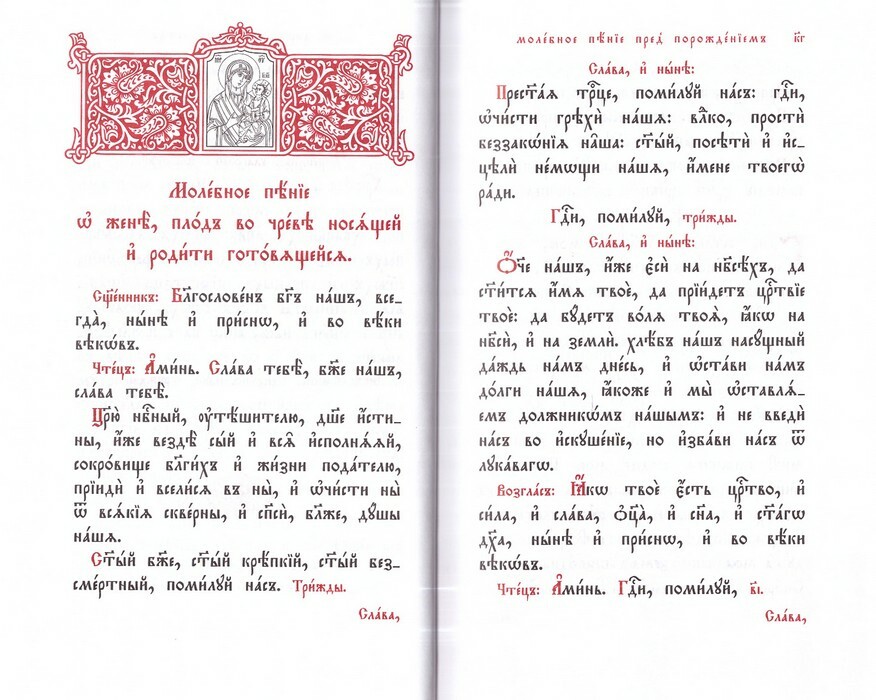 Моле́бное пѣ́нїе
ѡ҆ женѣ̀, пло́дъ во чре́вѣ нося́щей
и҆ роди́ти гото́вящейся.
Сщ҃е́нникъ: Бл҃гослове́нъ бг҃ъ на́шъ, все-
гда̀, ны́нѣ и҆ при́снѡ, и҆ во вѣ́ки
вѣкѡ́въ.
Чте́цъ: А҆ми́нь. Сла́ва тебѣ̀, бж҃е на́шъ,
сла́ва тебѣ̀.
Цр҃ю̀ нбⷭ҇ный, ᲂу҆тѣ́шителю, дш҃е и҆́сти-
ны, и҆́же вездѣ̀ сы́й и҆ всѧ̑ и҆сполнѧ́ѧй,
сокро́вище бл҃ги́хъ и҆ жи́зни пода́телю,
прїидѝ и҆ всели́сѧ въ ны̀, и҆ ѡ҆чи́сти ны̀
ѿ всѧ́кїѧ скве́рны, и҆ сп҃сѝ, бл҃же, дꙋ́шы
на́шѧ.
Ст҃ы́й бж҃е, ст҃ы́й крѣ́пкїй, ст҃ы́й без-
сме́ртный, поми́лꙋй на́съ. Три́жды.
Сла́ва,
моле́бное пѣ́нїе пред порожде́нїемъ к҃г
Сла́ва, и҆ ны́нѣ:
Прест҃а́ѧ трⷪ҇це, поми́лꙋй на́съ: гдⷭ҇и,
ѡ҆чи́сти грѣхѝ на́шѧ: влⷣко, простѝ
беззакѡ́нїѧ на̑ша: ст҃ы́й, посѣтѝ и҆ и҆с-
цѣлѝ не́мѡщи на́шѧ, и҆́мене твоегѡ̀
ра́ди.
Гдⷭ҇и, поми́лꙋй, три́жды.
Сла́ва, и҆ ны́нѣ:
Ѻ҆́ч҃е на́шъ, и҆́же є҆сѝ на нб҃сѣ́хъ, да
ст҃и́тсѧ и҆́мѧ твоѐ, да прїи́детъ црⷭ҇твїе
твоѐ: да бꙋ́детъ во́лѧ твоѧ̀, ꙗ҆́кѡ на
нб҃сѝ, и҆ на землѝ. хлѣ́бъ на́шъ насꙋ́щный
да́ждь на́мъ дне́сь, и҆ ѡ҆ста́ви на́мъ
до́лги на́шѧ, ꙗ҆́коже и҆ мы̀ ѡ҆ставлѧ́-
емъ должникѡ́мъ на́шымъ: и҆ не введѝ
на́съ во и҆скꙋше́нїе, но и҆зба́ви на́съ ѿ
лꙋка́вагѡ.
Во́згласъ: Ꙗ҆́кѡ твоѐ є҆́сть црⷭ҇тво, и҆
си́ла, и҆ сла́ва, ѻ҆ц҃а̀, и҆ сн҃а, и҆ ст҃а́гѡ
дх҃а, ны́нѣ и҆ при́снѡ, и҆ во вѣ́ки
вѣкѡ́въ.
Чте́цъ: А҆ми́нь. Гдⷭ҇и, поми́лꙋй, в҃і.
Сла́ва,